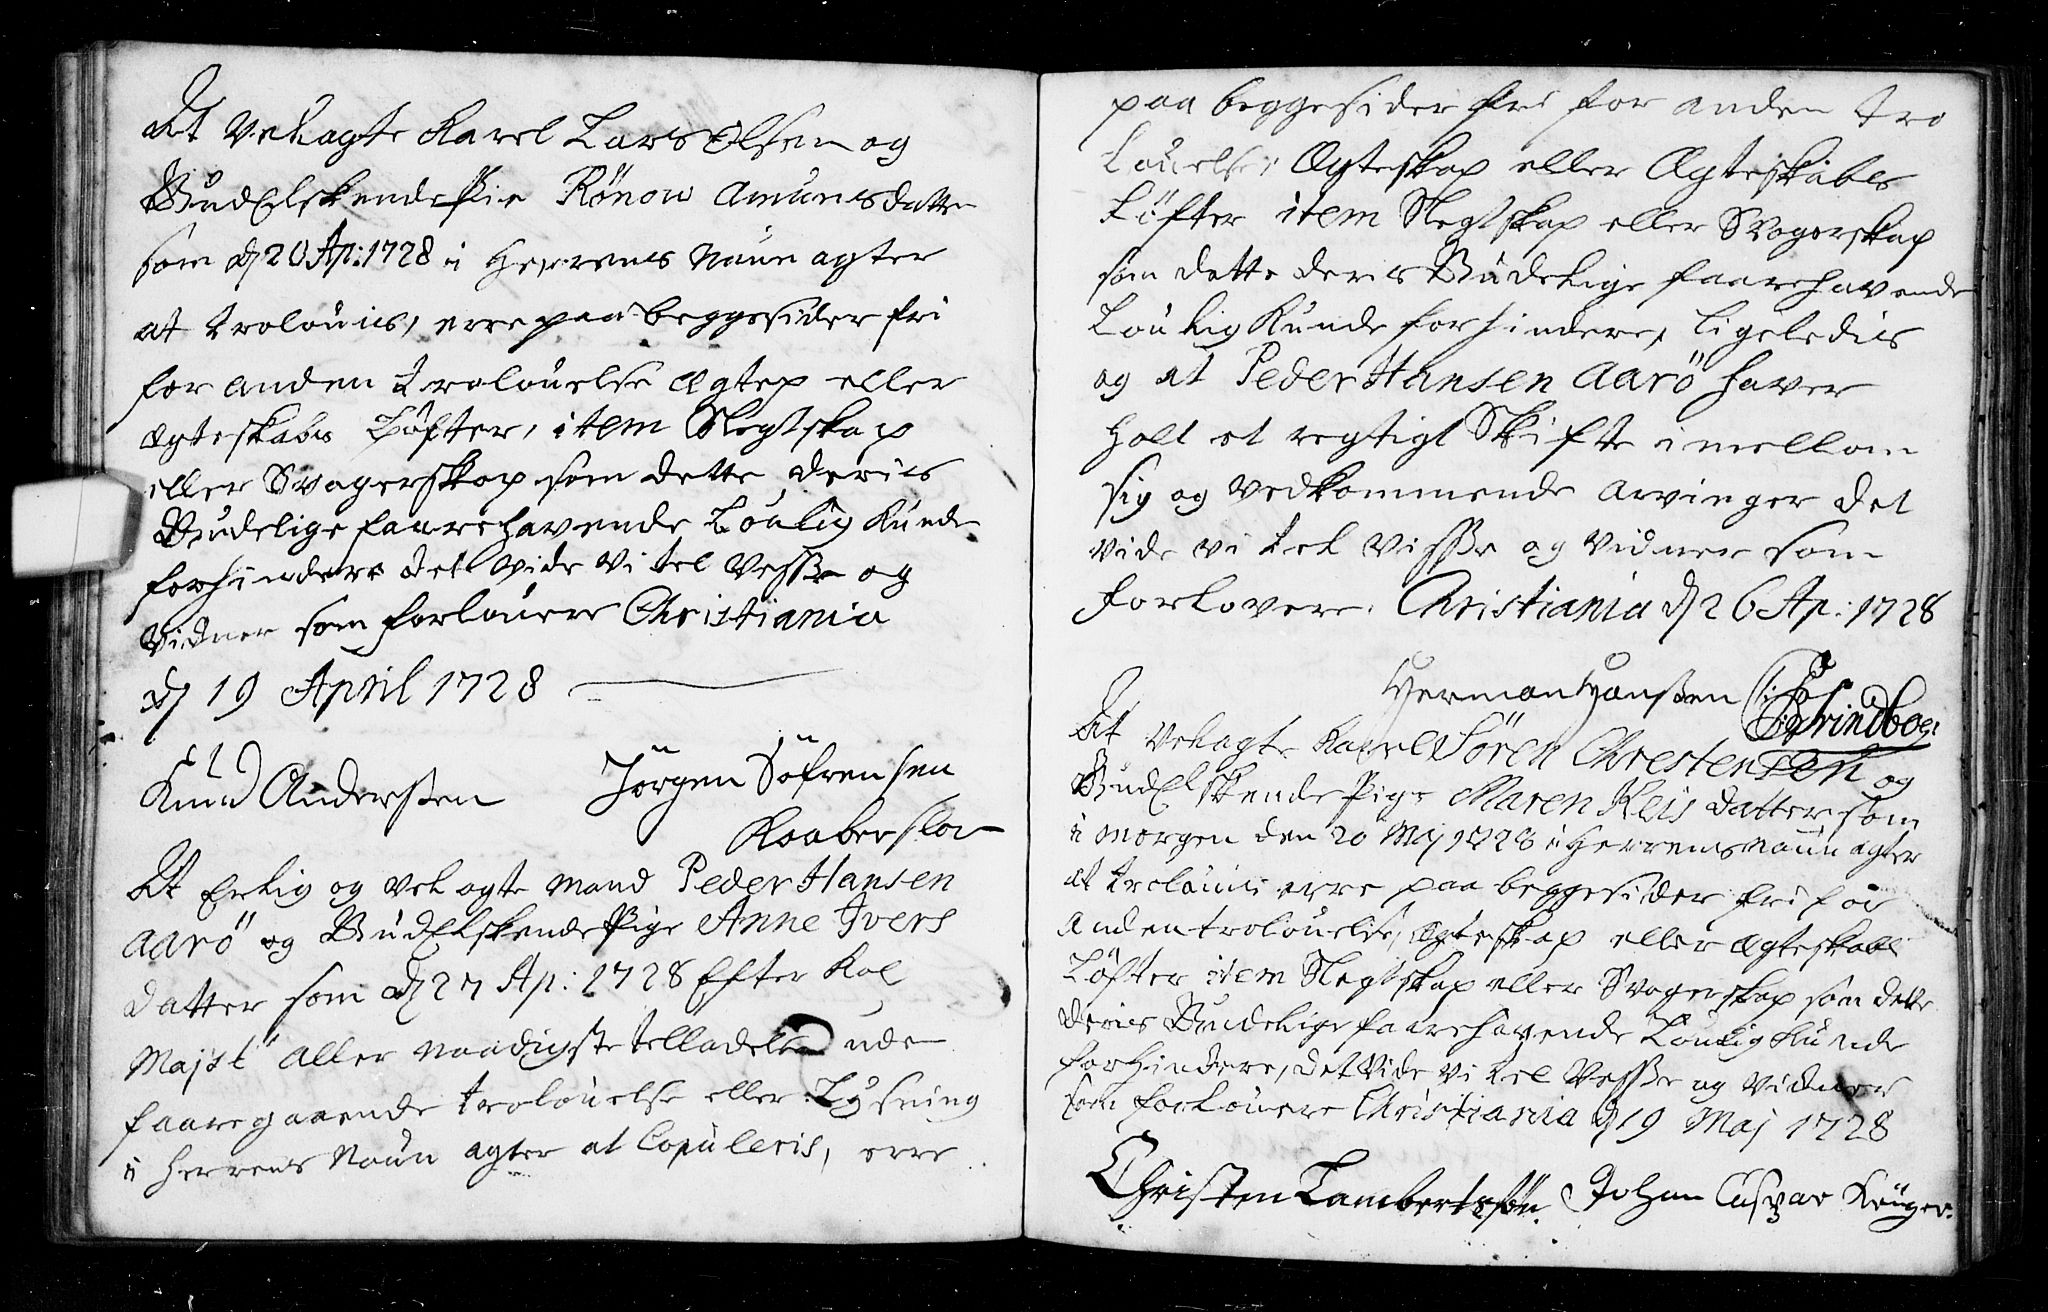 At Velagte Karel Lars Olsen og
Gudelskende Pie Rönow Amunsdatter
som dj 20 Ap: 1728 i Herrens Naun agter
at troloues, erre paa beggesider fri
for anden trolouelse ægtep eller
ægteskabs Løfter, item Slegtskap
eller Svagerskap som dette deris
Gudelige faarehavende Loulig Kunde
forhindere det vide vi tel Vesse og
Vidner som forlouere Christiania
dj 19 April 1728
Knud Andersten Jörgen Söfrensen
At Erlig og Velagte mand Peder Hansen
Aarö og Gudelskende Pige Anne Ivers
datter som dj 27 Ap: 1728 Efter Kol
Majst aller naadigste telladelse uden
faaregaaende trolouelse eller Lysning
i Herrens Naun agter at Copuleris, erre
paa beggesider fri for anden tro
louelse, Ægteskap eller Ægteskabs
Löfter item Slegtskap eller Svogerskap
som dette deris Gudelige faarehavende
Loulig Kunde forhindere, ligeledis
og at Peder Hansen Aarö haver
holt et regtigt Skifte imellom
sig og vedkommende arvinger det
vide vi tel visse og vidner som
forlovere. Christiania dj 26 Ap: 1728
Herman Hansen
At Velagte Karel Sören Chrestensen og
Gudelskende Pige Maren Neisdatter som
i morgen den 20 Maj 1728 i Herrens Naun agter
at troloues erre paa beggesider fri for
anden trolouelse, ægteskap eller ægteskabs
Løfter item Slegtskap eller Svogerskap som dette
deris Gudelige faarehavende Loulig Kunde
forhindere, det Vide vi tel Vesse og vidner
som forlouere Christiania dj 19 Maj 1728
Christen Lambertsøn. Johan Caspar Krüger.